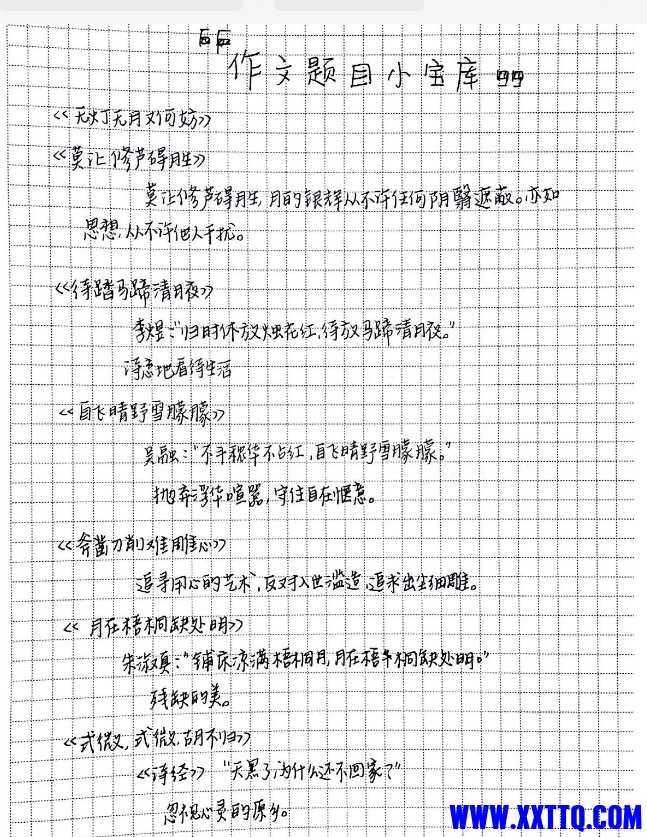 作文题目小宝库
《无灯无月又何妨》
《莫让修芦碍月生》
莫让修芦碍月生,月的银辉从不许任何阴翳遮蔽。亦如
思想,从不许他人干扰。
《待踏马蹄清月夜》
李煜:"归时休放烛花红,待放马蹄清月夜。"
诗意地看待生活
《自飞晴野雪朦朦》
吴融:"不争秾华不占红,自飞晴野雪朦朦。"
抛弃浮华喧嚣,守住自在惬意。
《斧凿刀削难雕心》
追寻用心的艺术,反对入世滥造,追求出尘细雕。
《月在梧桐缺处明》
朱淑真:"铺床凉满梧桐月,月在梧桐缺处明。"
残缺的美。
《式微,式微,胡不归》
《诗经》"天黑了为什么还不回家?"
忽视心灵的原乡。
WWW.XXTTQ.COM